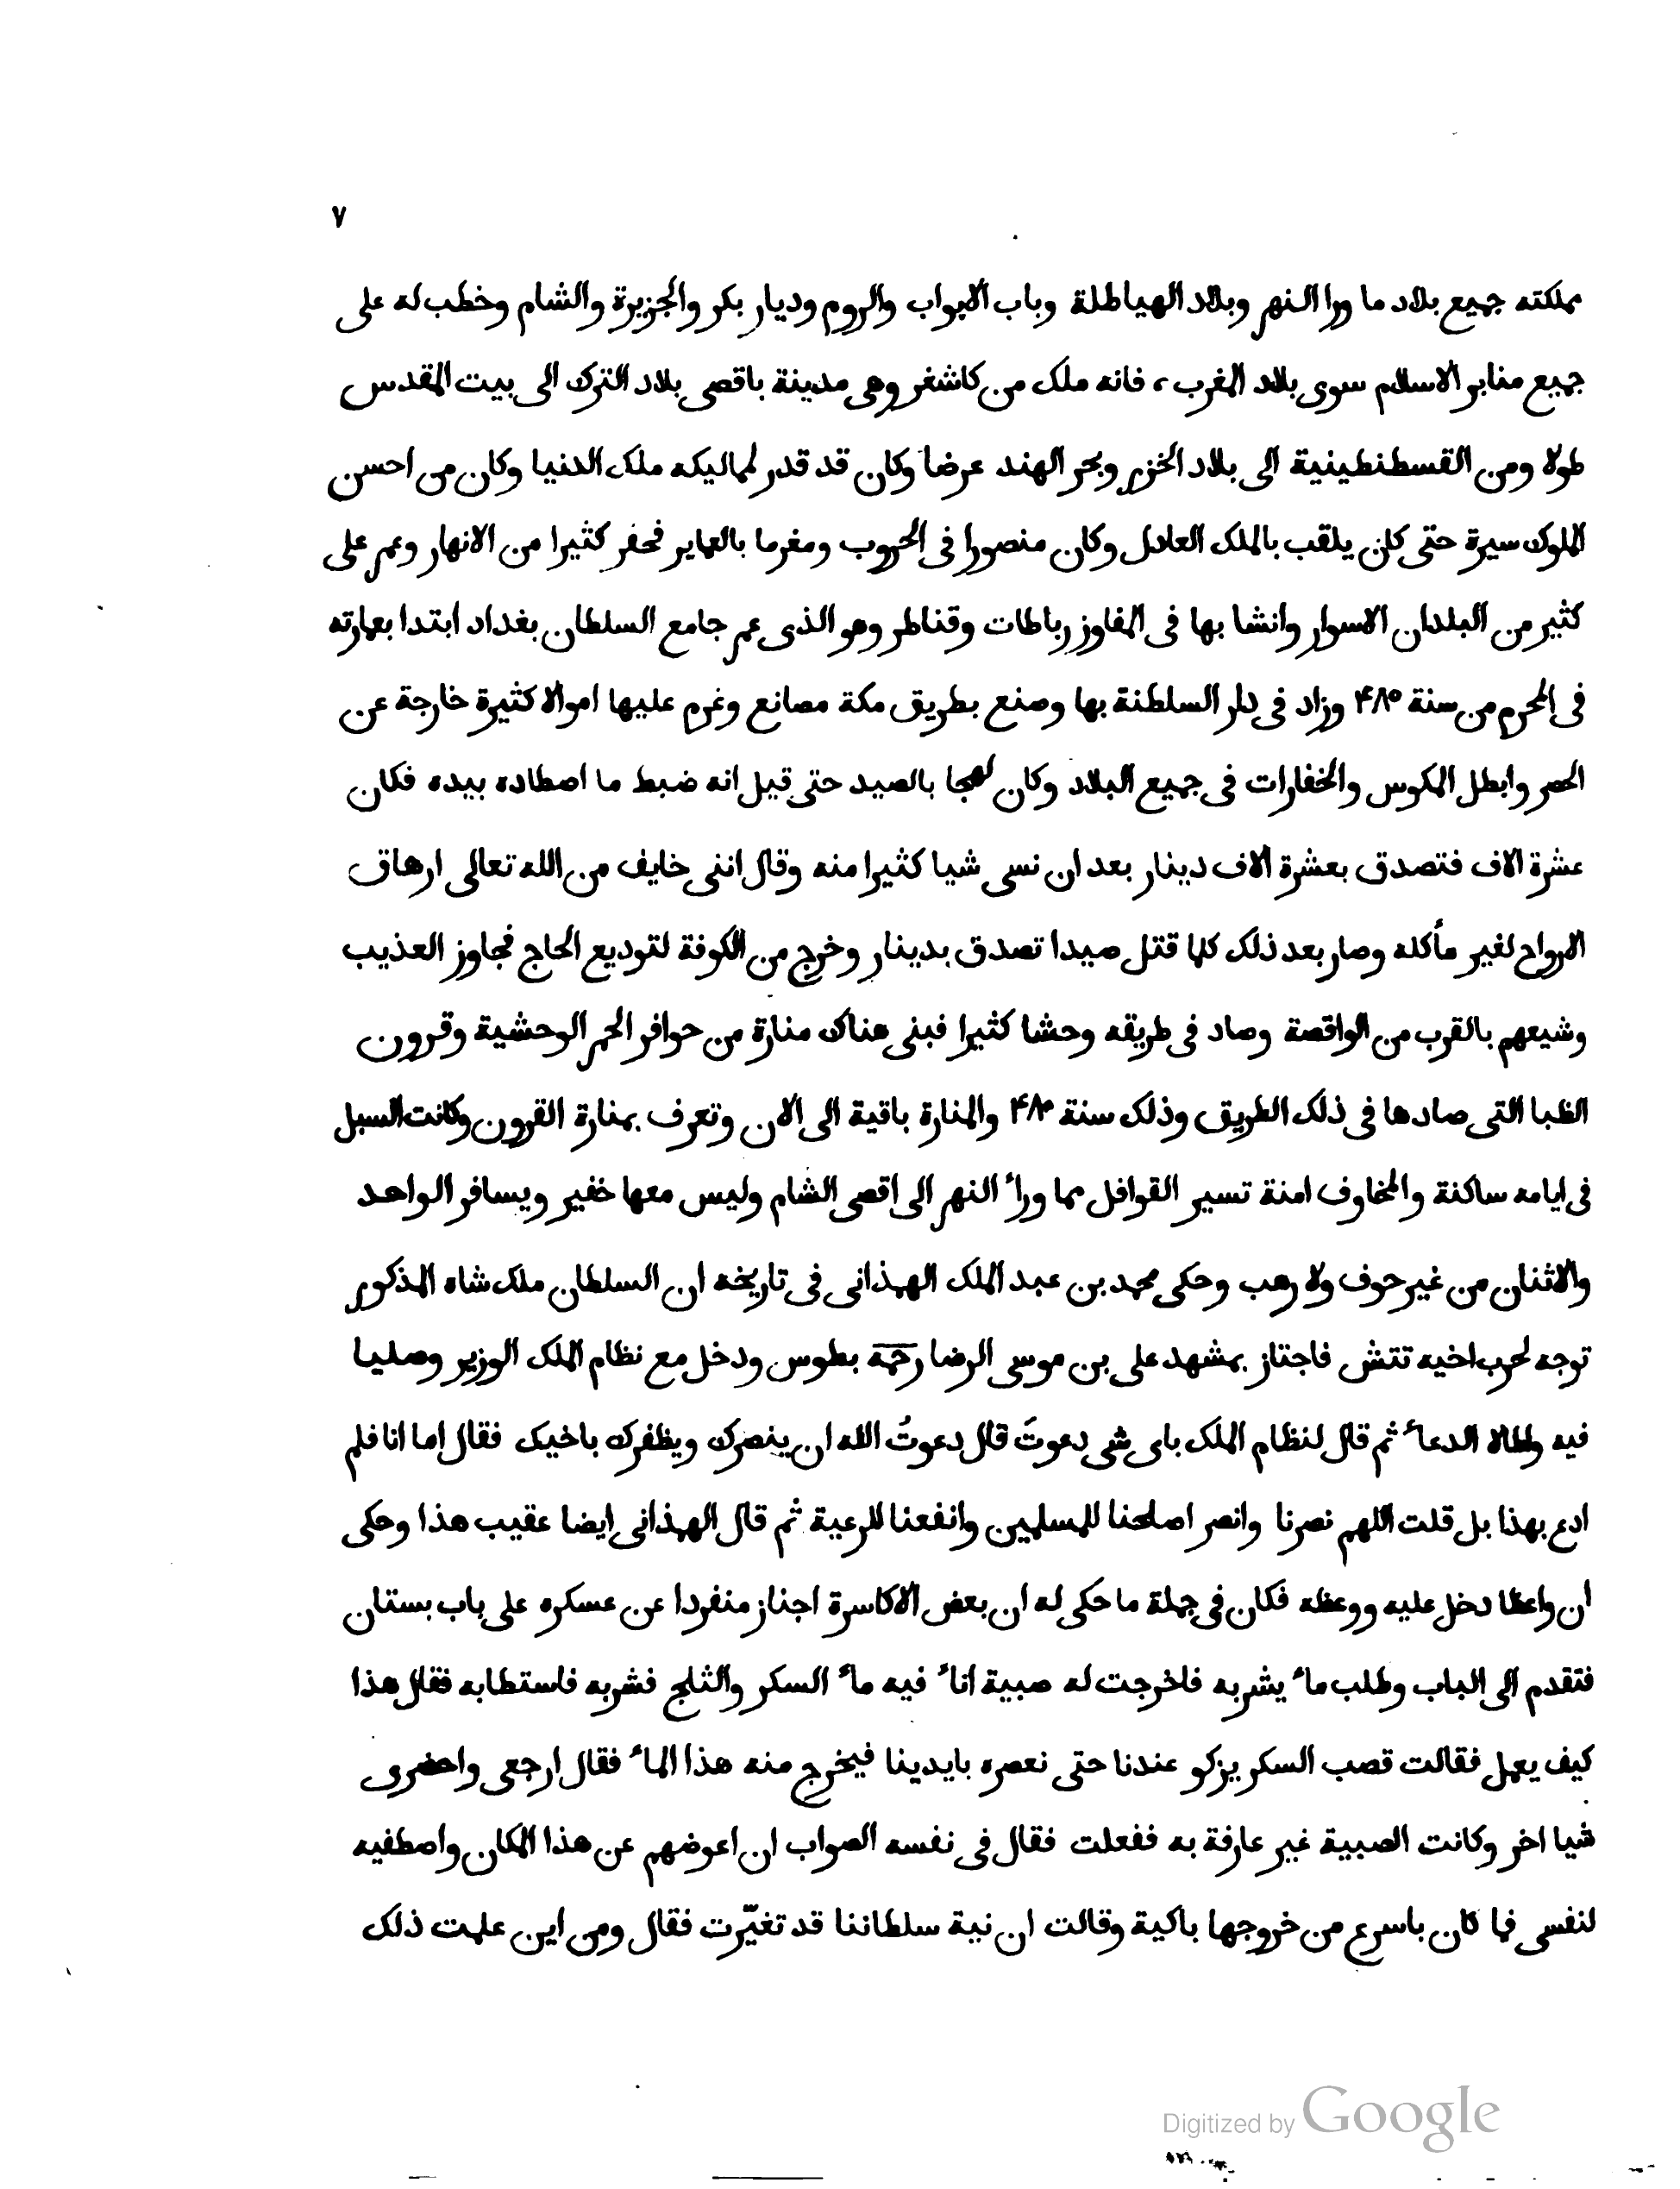 ٧
مملكته جميع بلاد ما ورا النهر وبلاد الهياطلة وباب الابواب والروم وديار بكر والجزيرة والشام وخطب له على
جميع منابر الاسلام سوى بلاد المغرب، فانه ملك من كاشغر وهى مدينة باقصى بلاد الترك الى بيت المقدس
طولا ومن القسطنطينية الى بلاد الخزر وبحر الهند عرضا وكان قد قدر لماليكه ملك الدنيا وكان من احسن
الملوك سيرة حتى كان يلقب بالملك العادل وكان منصورا فى الحروب ومغرما بالعماير فحفر كثيرا من الانهار وعمر على
كثير من البلدان الاسوار وانشا بها فى المفاوز رباطات وقناطر وهو الذى عمر جامع السلطان ببغداد ابتدا بعمارته
فى المحرم من سنة ۴۸۵ وزاد فى دار السلطنة بها وصنع بطريق مكة مصانع وغرم عليها اموالا كثيرة خارجة عن
الحصر وابطل المكوس والخفارات فى جميع البلاد وكان لهجا بالصيد حتى قيل انه ضبط ما اصطاده بيده فكان
عشرة الاف فتصدق بعشرة الاف دينار بعد ان نسى شيا كثيرا منه وقال اننى خايف من الله تعالى ارهاق
الارواح لغير مأكله وصار بعد ذلك كلما قتل صيدا تصدق بدينار وخرج من الكوفة لتوديع الحاج فجاوز العذيب
وشيعهم بالقرب من الواقصة وصاد فى طريقه وحشا كثيرا فبنى هناك منارة من حوافر الحمر الوحشية وقرون
الظبا التى صادها فى ذلك الطريق وذلك سنة والمنارة باقية الى الان وتعرف بمنارة القرون وكانت السبل
فى ايامه ساكنة والمخاوف امنة تسير القوافل مما وراء النهر الى اقصى الشام وليس معها خفير ويسافر الواحد
والاثنان من غير حوف ولا رهب وحكى محمد بن عبد الملك الهمذانى فى تاريخه ان السلطان ملك شاه المذكور
توجه لحرب اخيه تتش فاجتاز بمشهد على بن موسى الرضا رحمه بطوس ودخل مع نظام الملك الوزير وصليا
فيه واطالا الدعاء ثم قال لنظام الملك باى شى دعوتَ قال دعوتُ الله ان ينصرك ويظفرك باخيك فقال اما انا فلم
ادع بهذا بل قلت اللهم نصرنا وانصر اصلحنا للمسلمين وانفعنا للرعية ثم قال الهمذانى ايضا عقيب هذا وحكى
ان واعظا دخل عليه ووعظه فكان فى جملة ما حكى له ان بعض الاكاسرة اجناز منفردا عن عسكره على باب بستان
فتقدم الى الباب وطلب ماء يشربه فاخرجت له صبية اناء فيه ماء السكر والثلج فشربه فاستطابه فقال هذا
كيف يعمل فقالت قصب السكر يزكو عندنا حتى نعصره بايدينا فيخرج منه هذا الماء فقال ارجعى واحضرى
شيا اخر وكانت الصبية غير عارفة به ففعلت فقال فى نفسه الصواب ان اعوضهم عن هذا المكان واصطفيه
لنفسى فما كان باسرع من خروجها باكية وقالت ان نية سلطاننا قد تغيّرت فقال ومن اين علمت ذلك
Digitized by Google